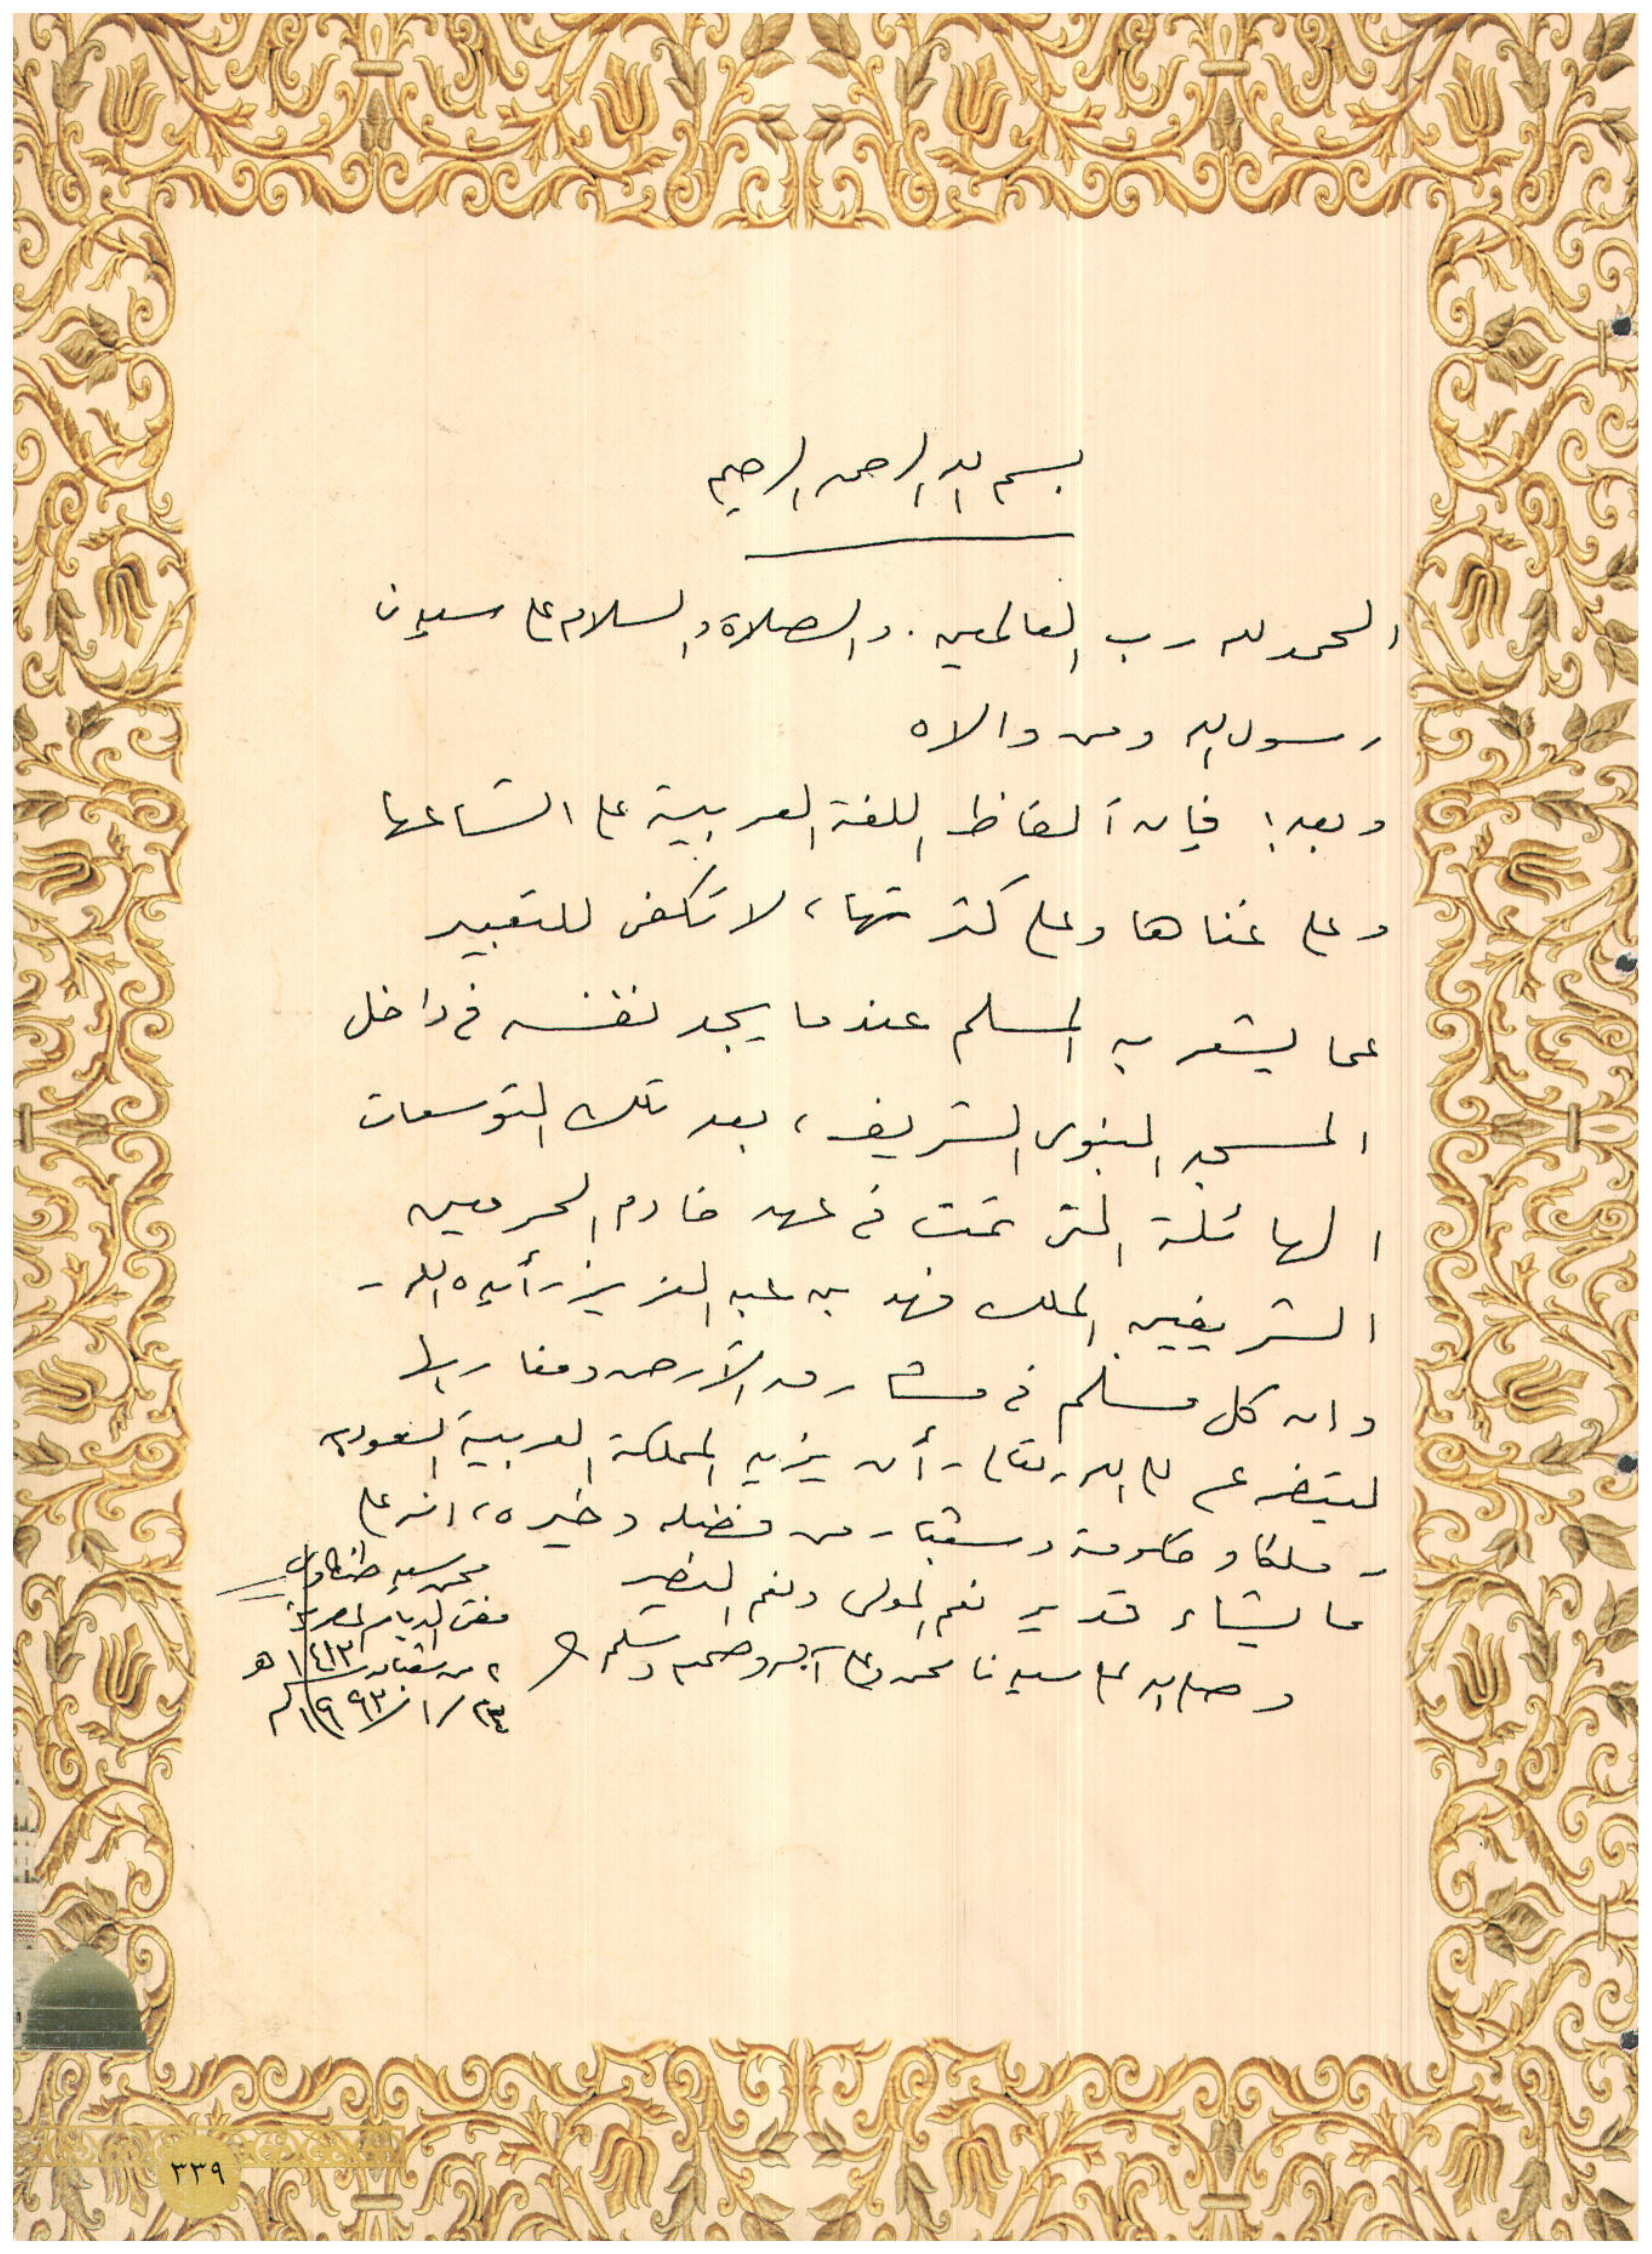 بسم الله الرحمن الرحيم
الحمد لله رب العالمين . والصلاة والسلام على سيدنا
رسول الله ومن والاه
وبعد : فإن ألفاظ اللغة العربية على اتساعها
وعلى غناها وعلى كثرتها ، لا تكفى للتعبير
عما يشعر به المسلم عندما يجد نفسه فى داخل
المسجد النبوى الشريف ، بعد تلك التوسعات
الهائلة التى تمت فى عهد خادم الحرمين
الشريفين الملك فهد بن عبد العزيز - أيده الله -
وان كل مسلم فى مشارق الأرض ومغاربها
ليتضرع الى الله - تعالى - أن يزيد المملكة العربية السعودية
- ملكا وحكومة وشعبا - من فضله وخيره ، انه على
ما يشاء قدير نعم المولى ونعم النصير
وصلى الله على سيدنا محمد وعلى آله وصحبه وسلم
محمد سيد طنطاوى
مفتى الديار المصرية
من شعبان ١٤١٣ هـ
١٩٩٣/١/٢٤ م
٣٣٩